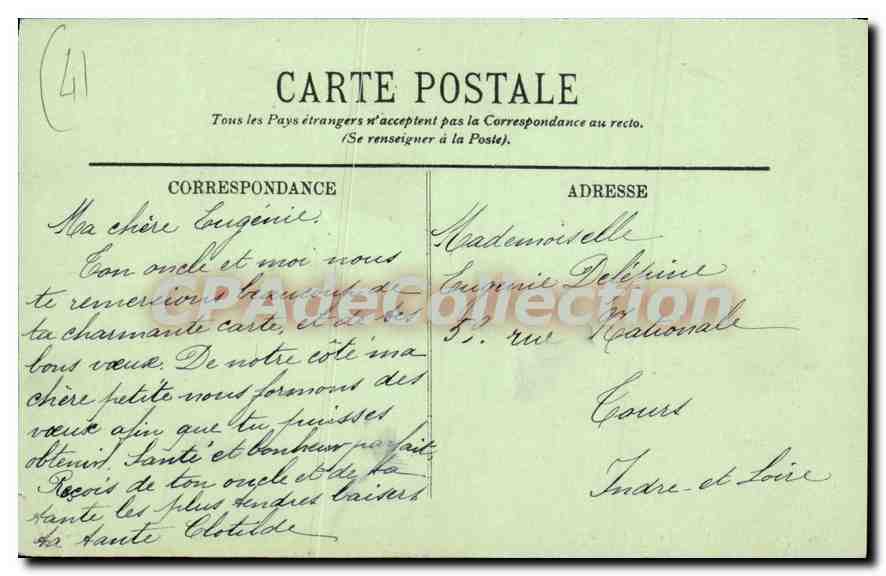 (41
CARTE POSTALE
Tous les Pays étrangers n'acceptent pas la Correspondance au recto.
(Se renseigner à la Poste).
CORRESPONDANCE
Ma chère Eugénie.
Ton oncle et moi nous
te remersions beaucoup de
ta charmante carte, et de tes
bons vœux. De notre côté ma
chère petite nous formons des
vœux afin que tu puisses
obtenir. Santé et bonheur parfait.
Reçois de ton oncle et de ta
tante les plus tendres baisers
ta tante Clotilde
ADRESSE
Mademoiselle
Eugénie Delépine
rue Nationale
Tours
Indre-et Loire
CPAdeCollection